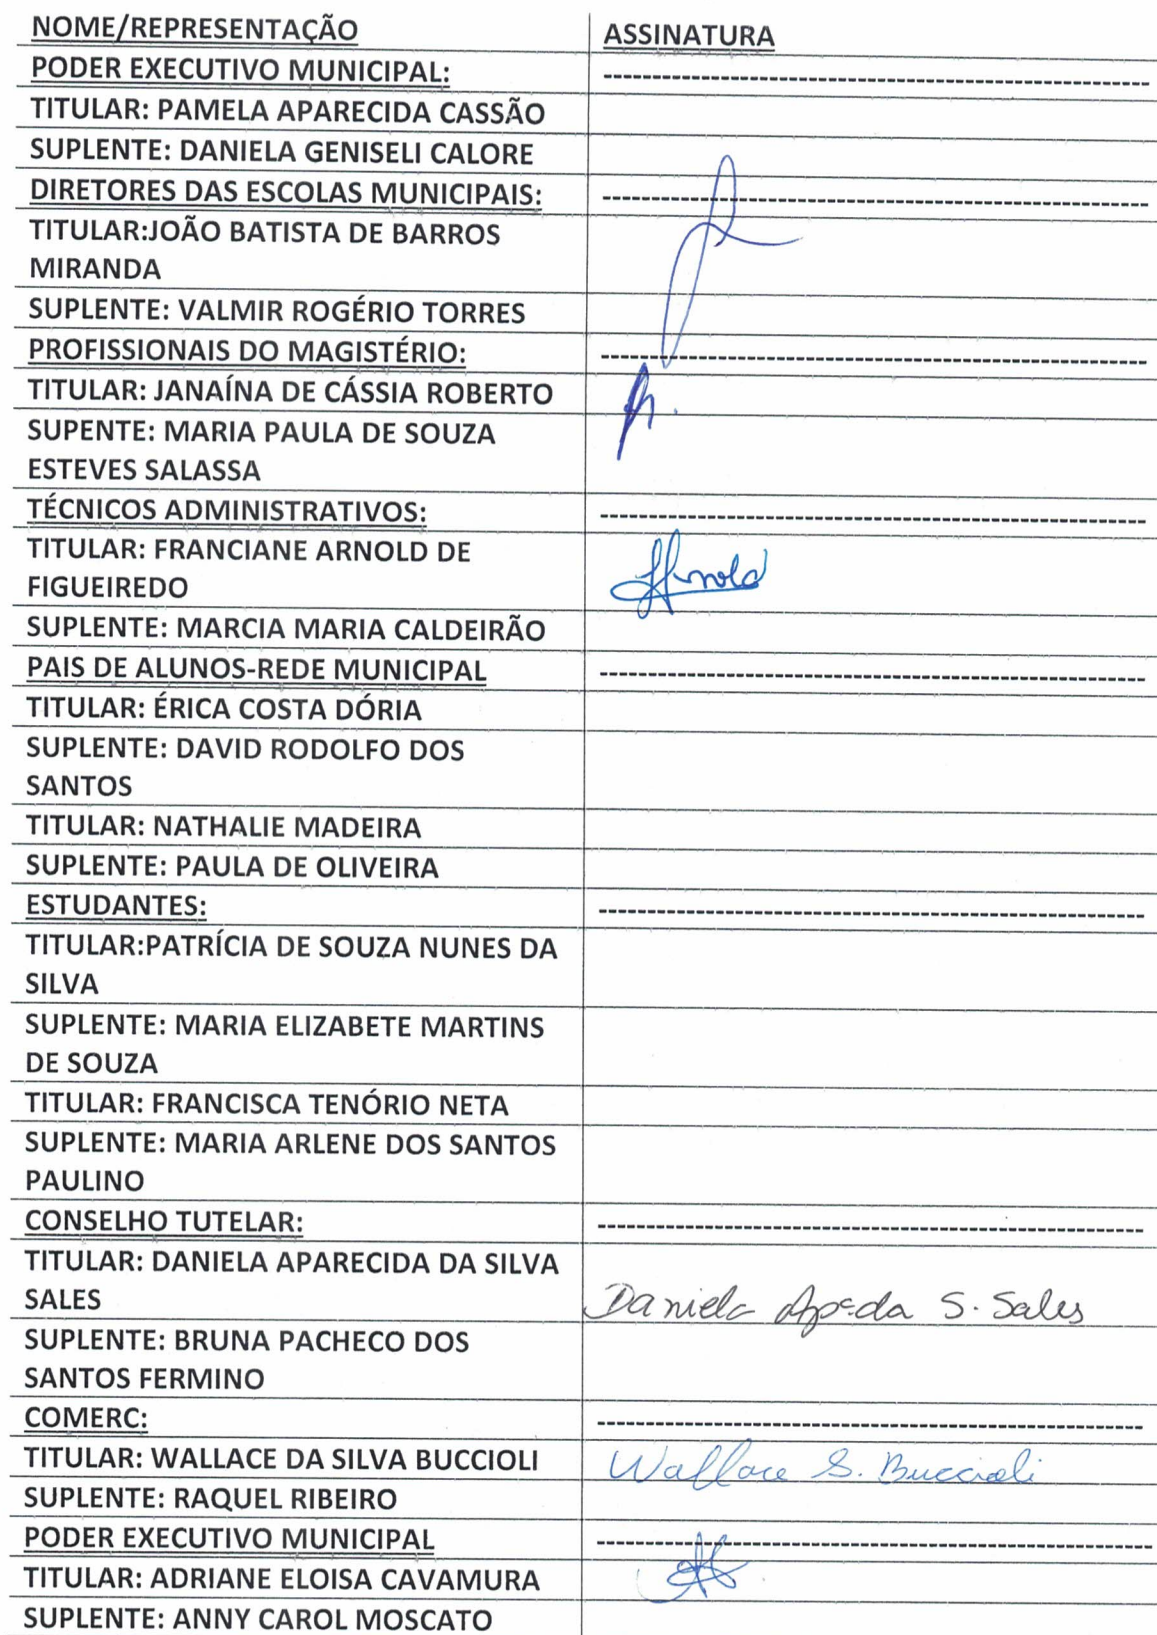 NOME/REPRESENTAÇÃO ASSINATURA
PODER EXECUTIVO MUNICIPAL: ---------------------------------------------------------
TITULAR: PAMELA APARECIDA CASSÃO
SUPLENTE: DANIELA GENISELI CALORE
DIRETORES DAS ESCOLAS MUNICIPAIS: ---------------------------------------------------------
TITULAR:JOÃO BATISTA DE BARROS
MIRANDA
SUPLENTE: VALMIR ROGÉRIO TORRES
PROFISSIONAIS DO MAGISTÉRIO: ---------------------------------------------------------
TITULAR: JANAÍNA DE CÁSSIA ROBERTO
SUPENTE: MARIA PAULA DE SOUZA
ESTEVES SALASSA
TÉCNICOS ADMINISTRATIVOS: ---------------------------------------------------------
TITULAR: FRANCIANE ARNOLD DE
FIGUEIREDO
SUPLENTE: MARCIA MARIA CALDEIRÃO
PAIS DE ALUNOS-REDE MUNICIPAL ---------------------------------------------------------
TITULAR: ÉRICA COSTA DÓRIA
SUPLENTE: DAVID RODOLFO DOS
SANTOS
TITULAR: NATHALIE MADEIRA
SUPLENTE: PAULA DE OLIVEIRA
ESTUDANTES: ---------------------------------------------------------
TITULAR:PATRÍCIA DE SOUZA NUNES DA
SILVA
SUPLENTE: MARIA ELIZABETE MARTINS
DE SOUZA
TITULAR: FRANCISCA TENÓRIO NETA
SUPLENTE: MARIA ARLENE DOS SANTOS
PAULINO
CONSELHO TUTELAR: ---------------------------------------------------------
TITULAR: DANIELA APARECIDA DA SILVA
SALES Daniela Apcda S. Sales
SUPLENTE: BRUNA PACHECO DOS
SANTOS FERMINO
COMERC: ---------------------------------------------------------
TITULAR: WALLACE DA SILVA BUCCIOLI Wallace S. Buccioli
SUPLENTE: RAQUEL RIBEIRO
PODER EXECUTIVO MUNICIPAL ---------------------------------------------------------
TITULAR: ADRIANE ELOISA CAVAMURA
SUPLENTE: ANNY CAROL MOSCATO